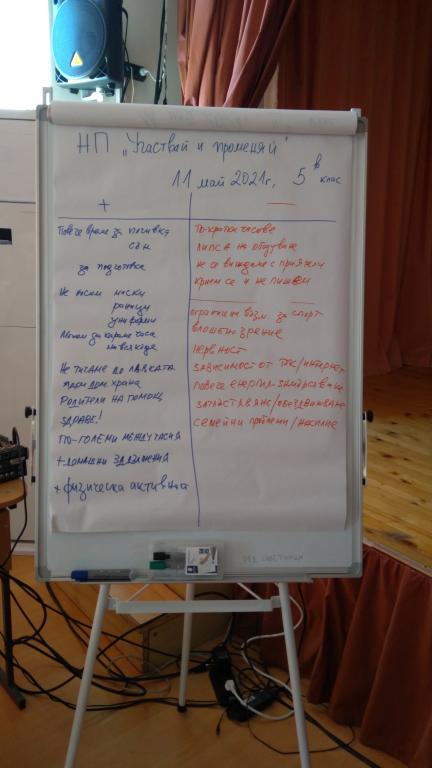 НП „Участвай и променяй"
11 май 2021г. 5 в клас
+
Повече време за почивка
сън
за подготовка
Не носим маски
раници
униформи
Можем да караме часа
навсякъде
Не тичане до лавката
ядем дом. храна
Родители на помощ
ЗДРАВЕ!
по-големи междучасия
+ домашни задължения
+ физическа активност
—
По-кратки часове
липса на общуване
не се виждаме с приятели
крием се и не пишем
ограничени възм. за спорт
влошено зрение
нервност
зависимост от тик/интернет
повече енергия-
затлъстяване/обездвижване
семейни проблеми/насилие